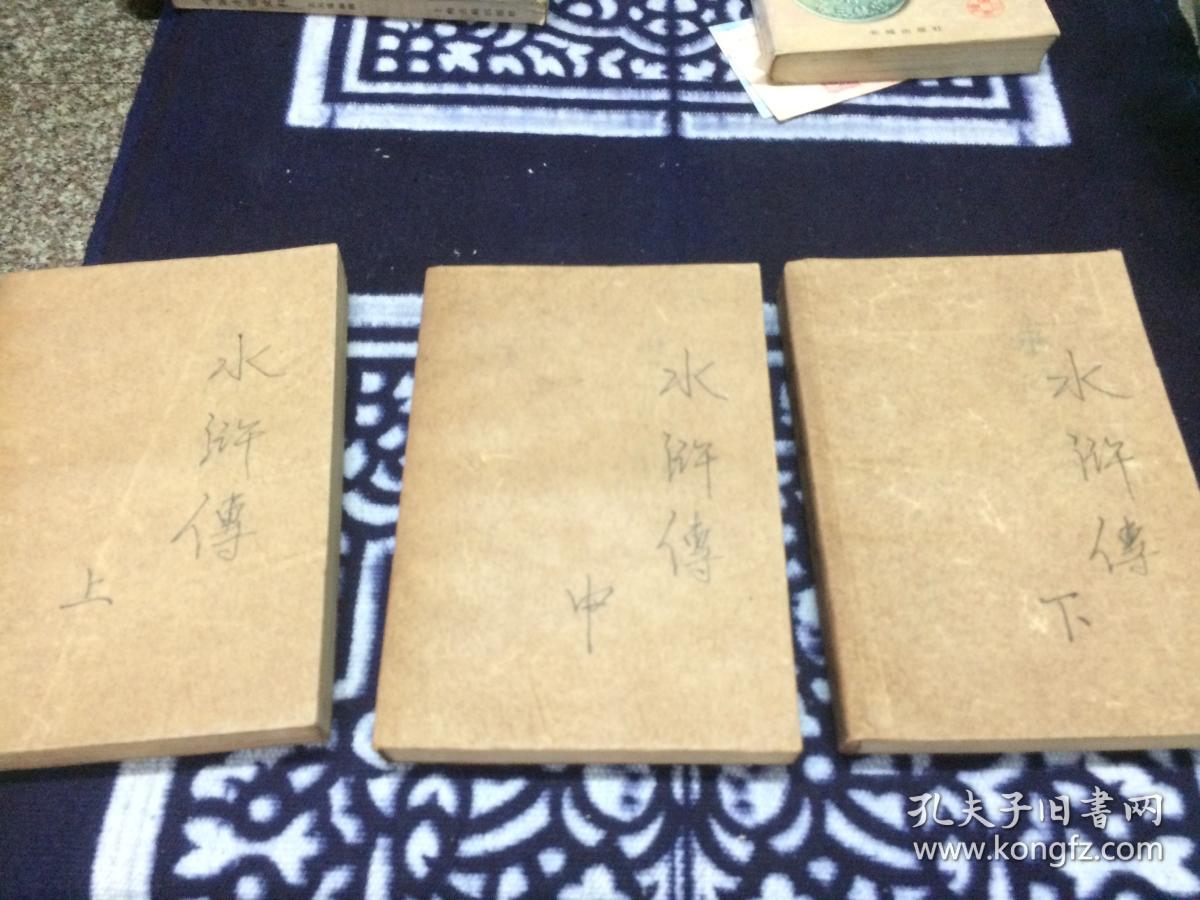 水滸傳
上
水滸傳
中
水滸傳
下
孔夫子旧書网
www.kongfz.com